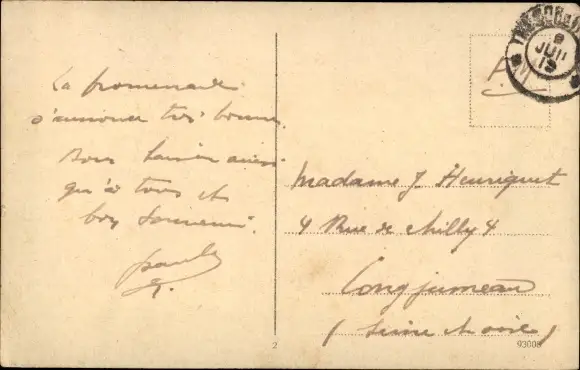 La promenade
s'annonce très bonne.
Bons baisers ainsi
qu'à tous et
bon souvenir.
Paul
Madame J. Henriquet
4 Rue de Chilly 4
Longjumeau
(Seine et oise)
8
JUIL
F.M
2